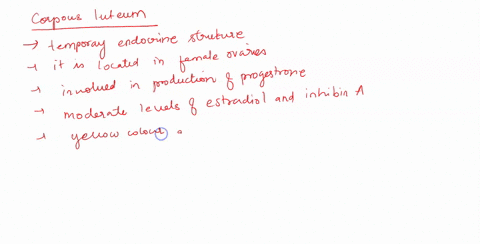 Corpous luteum
→ temporay endocrine struture
→ it is located in female ovaries
→ involved in production of progestrone
→ moderate levels of estradiol and inhibin A
→ yellow colour